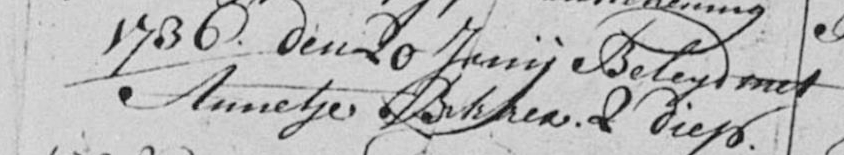 1736. den 20 Junij Beleyd met
Annetje Bekker. 2 diep.